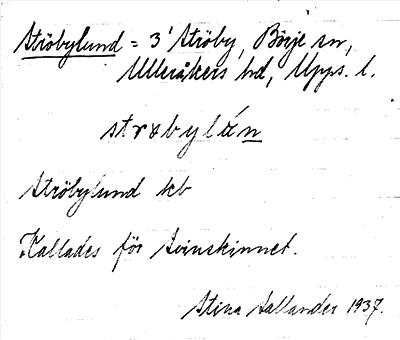 Ströbylund = 3' Ströby, Börje sn,
Ulleråkers hd, Upps. l.
strøbylún
Ströbylund kb
Kallades för Svinskinnet.
Stina Sallander 1937.